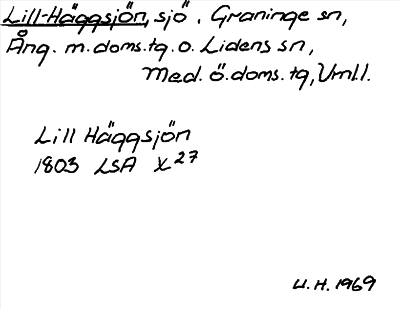 Lill-Häggsjön, sjö. Graninge sn,
Ång. m. doms.tg. o. Lidens sn,
Med. ö. doms. tg, Vrnl.l.
Lill Häggsjön
1803 LSA X27
U.H. 1969